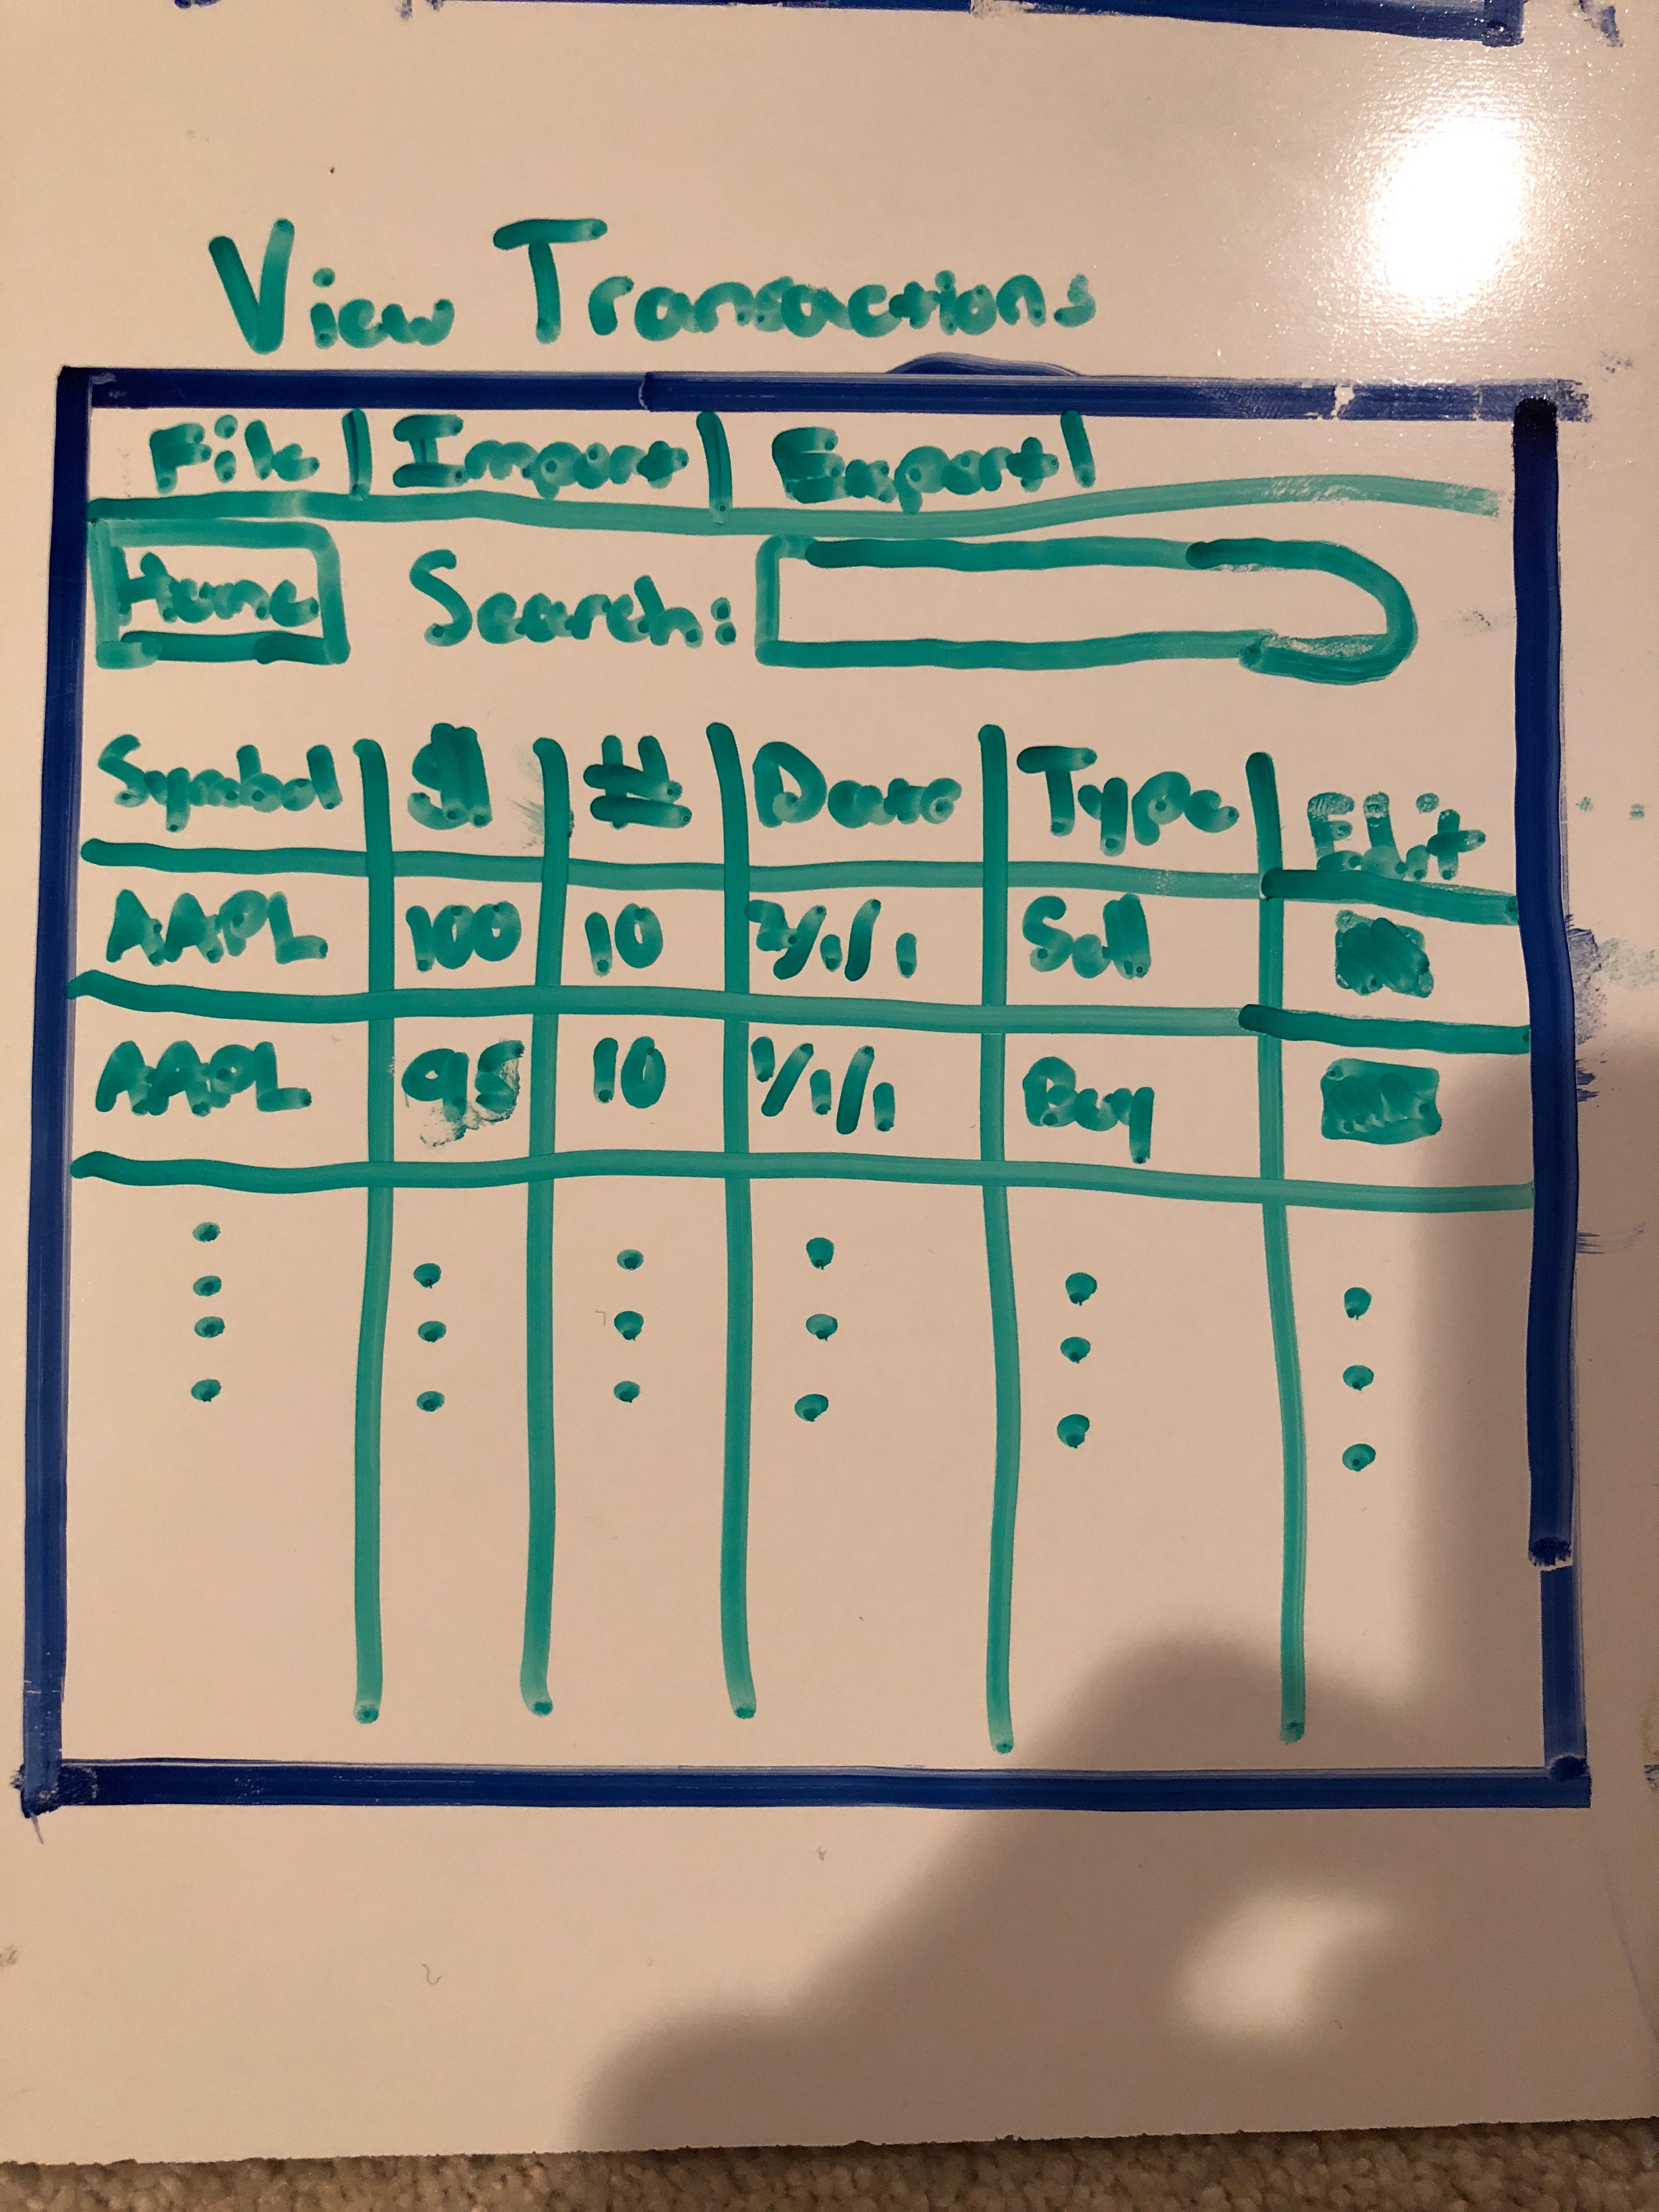 View Transactions
File | Import | Export |
Home Search:
Symbol $ # Date Type Edit
AAPL 100 10 2/1/1 Sell
AAPL 95 10 1/1/1 Buy